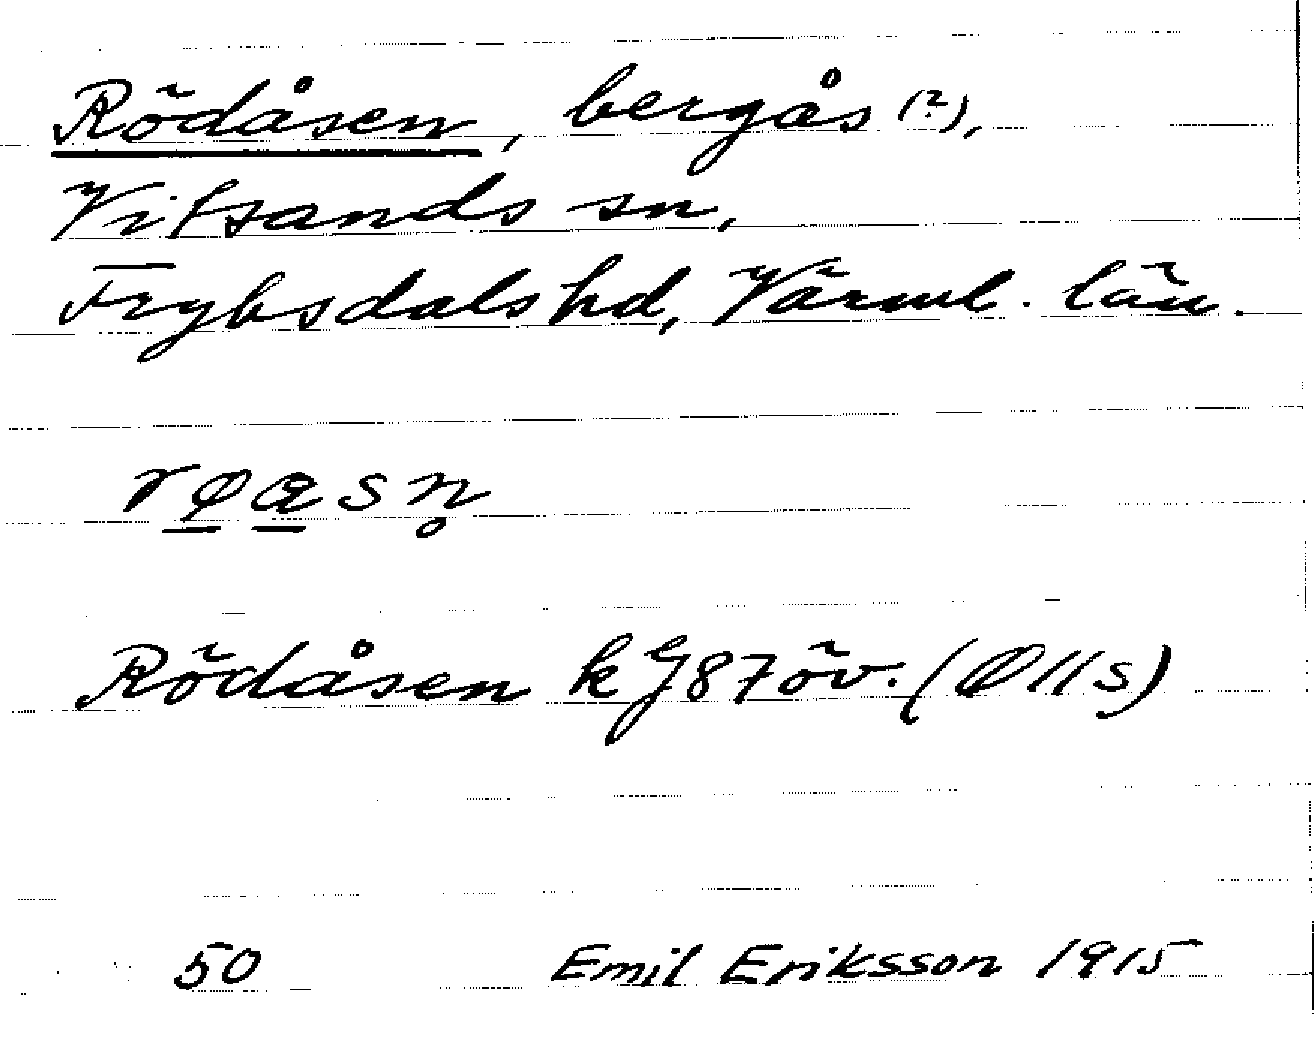 Rödåsen, bergås (?),
Vitsands sn,
Fryksdals hd, Värml. län.
Rödåsen kJ87öv. (Ö11s)
50 Emil Eriksson 1915